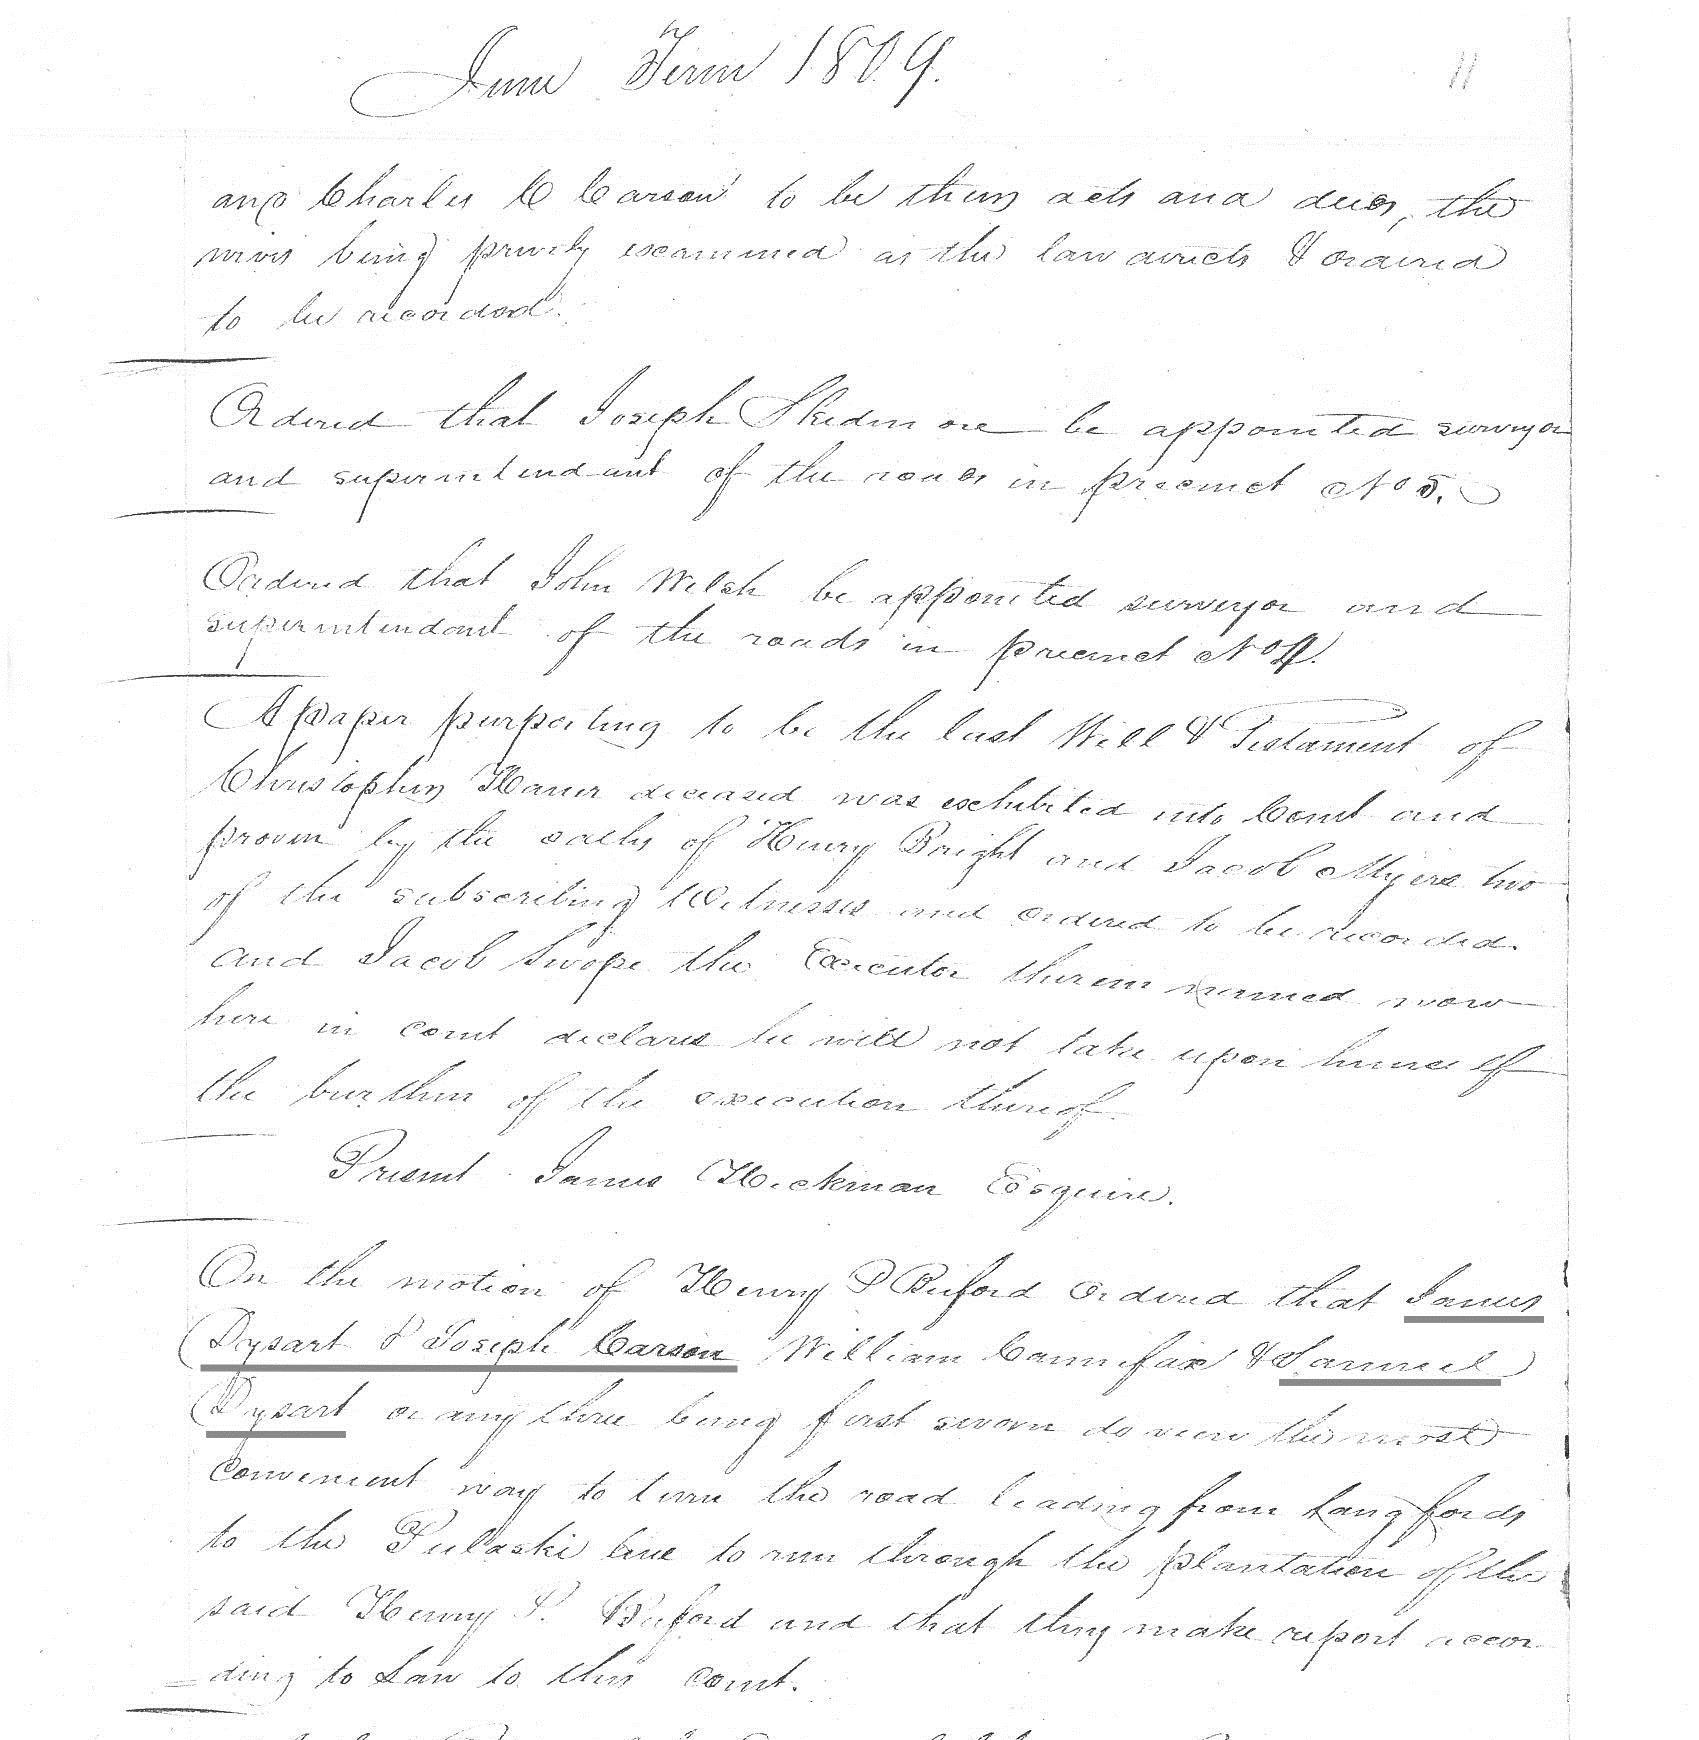 June Term 1809.
11
and Charles C Carson to be their acts and deeds, the
wives being privily examined as the law directs & ordered
to be recorded.
Ordered that Joseph Skidmore be appointed surveyor
and superintendant of the roads in precinct No 5.
Ordered that John Welsh be appointed surveyor and
superintendant of the roads in precinct No
A paper purporting to be the last Will & Testament of
Christopher deceased was exhibited into Court and
proven by the oaths of Henry Bright and Jacob Myers two
of the subscribing Witnesses and ordered to be recorded.
and Jacob Swope the Executor therein named now
here in court declares he will not take upon himself
the burthen of the execution thereof.
Present James Hickman Esquire.
On the motion of Henry P Buford ordered that James
Dysart & Joseph Carson William Cannifax & Samuel
Dysart or any three being first sworn do view the most
convenient way to turn the road leading from Langfords
to the Pulaski line to run through the plantation of the
said Henry P. Buford and that they make report accor
ding to Law to this court.